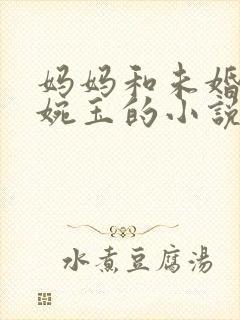 妈妈和未婚
婉玉的小説
水煮豆腐湯